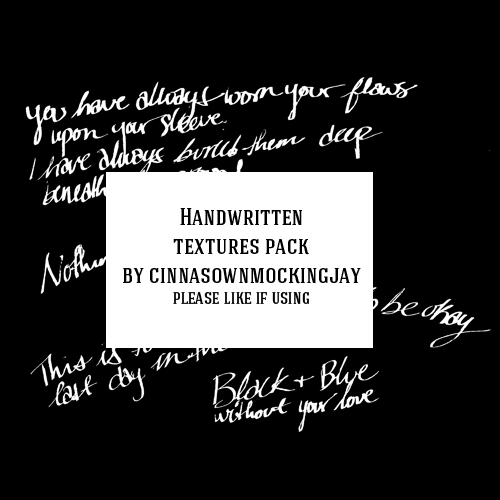 you have always worn your flaws
upon your sleeve.
I have always buried them deep
beneath
HANDWRITTEN
TEXTURES PACK
BY CINNASOWNMOCKINGJAY
PLEASE LIKE IF USING
be okay
This is
last day in the
Black + Blue
without your love